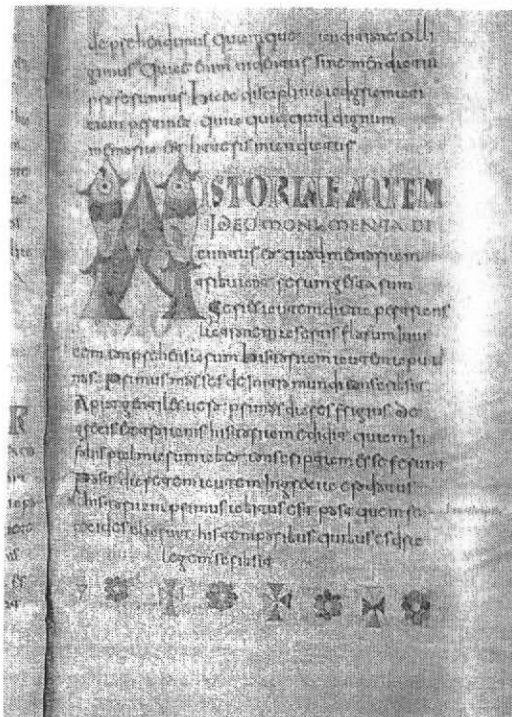 deprehendimus quam que auditione colli
gimus Que enim uidentur sine mendatio
proferuntur Hec disciplina ad gramati
cam pertinet quia quicquid dignum
memoria est litteris mandatur
ISTORIAE AUTEM
IDEO MONUMENTA DI
cuntur eo quod memoriam
tribuant rerum gestarum
Series autem dicta per trans
lationem a sertis florum inui
cem conprehensarum Historiam autem aput
nos primus moses de initio mundi conscripsit
Aput gentiles uero primus dares frigius de
grecis et troianis historiam edidit quam in
foliis palmarum ab eo conscriptam esse ferunt
Post daretem autem in grecia erodotus
historiam primus abitus est post quem fe
recides claruit his temporibus quibus esdras
legem scripsit